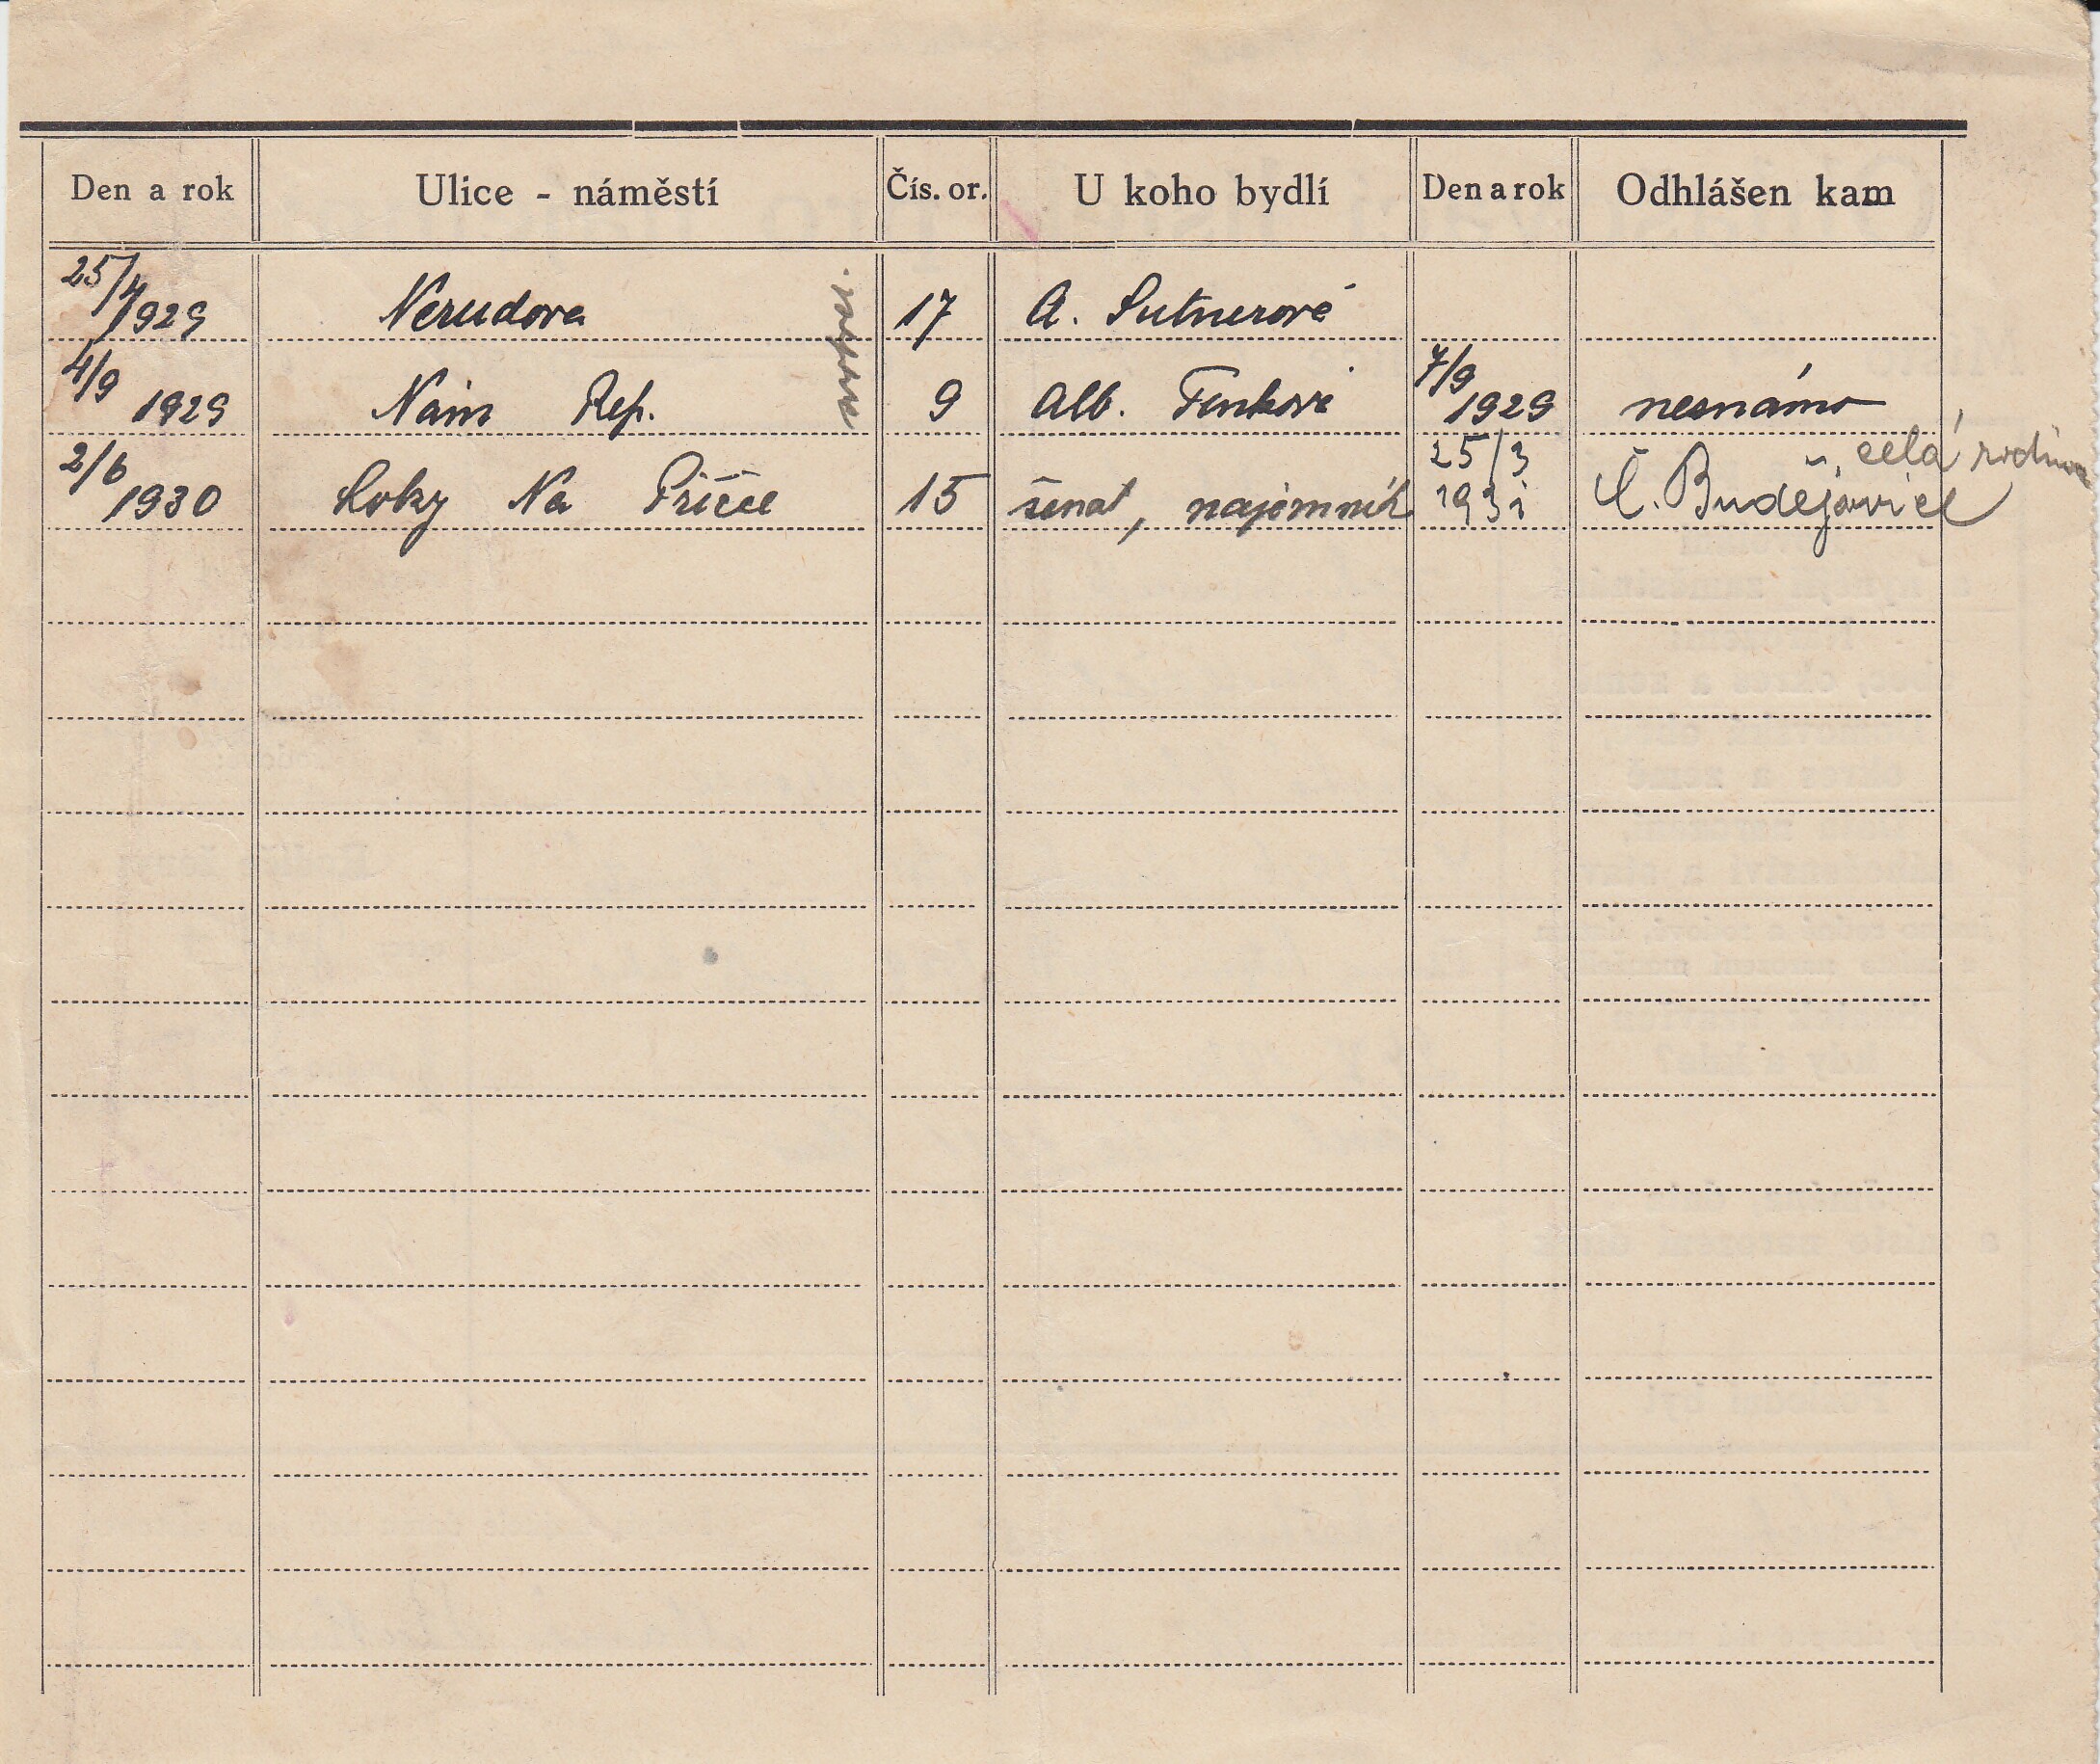 Den a rok Ulice - náměstí Čís. or. U koho bydlí Den a rok Odhlášen kam
25/4 1929 Nerudova 17 A. Sutnerové
4/9 1929 Nám Rep. 9 Alb. Funkové 7/9 1929 nesnámo
2/6 1930 Loky Na Příčce 15 ženat, najemník 25/3 1931 Č. Budějovice, celá rodina